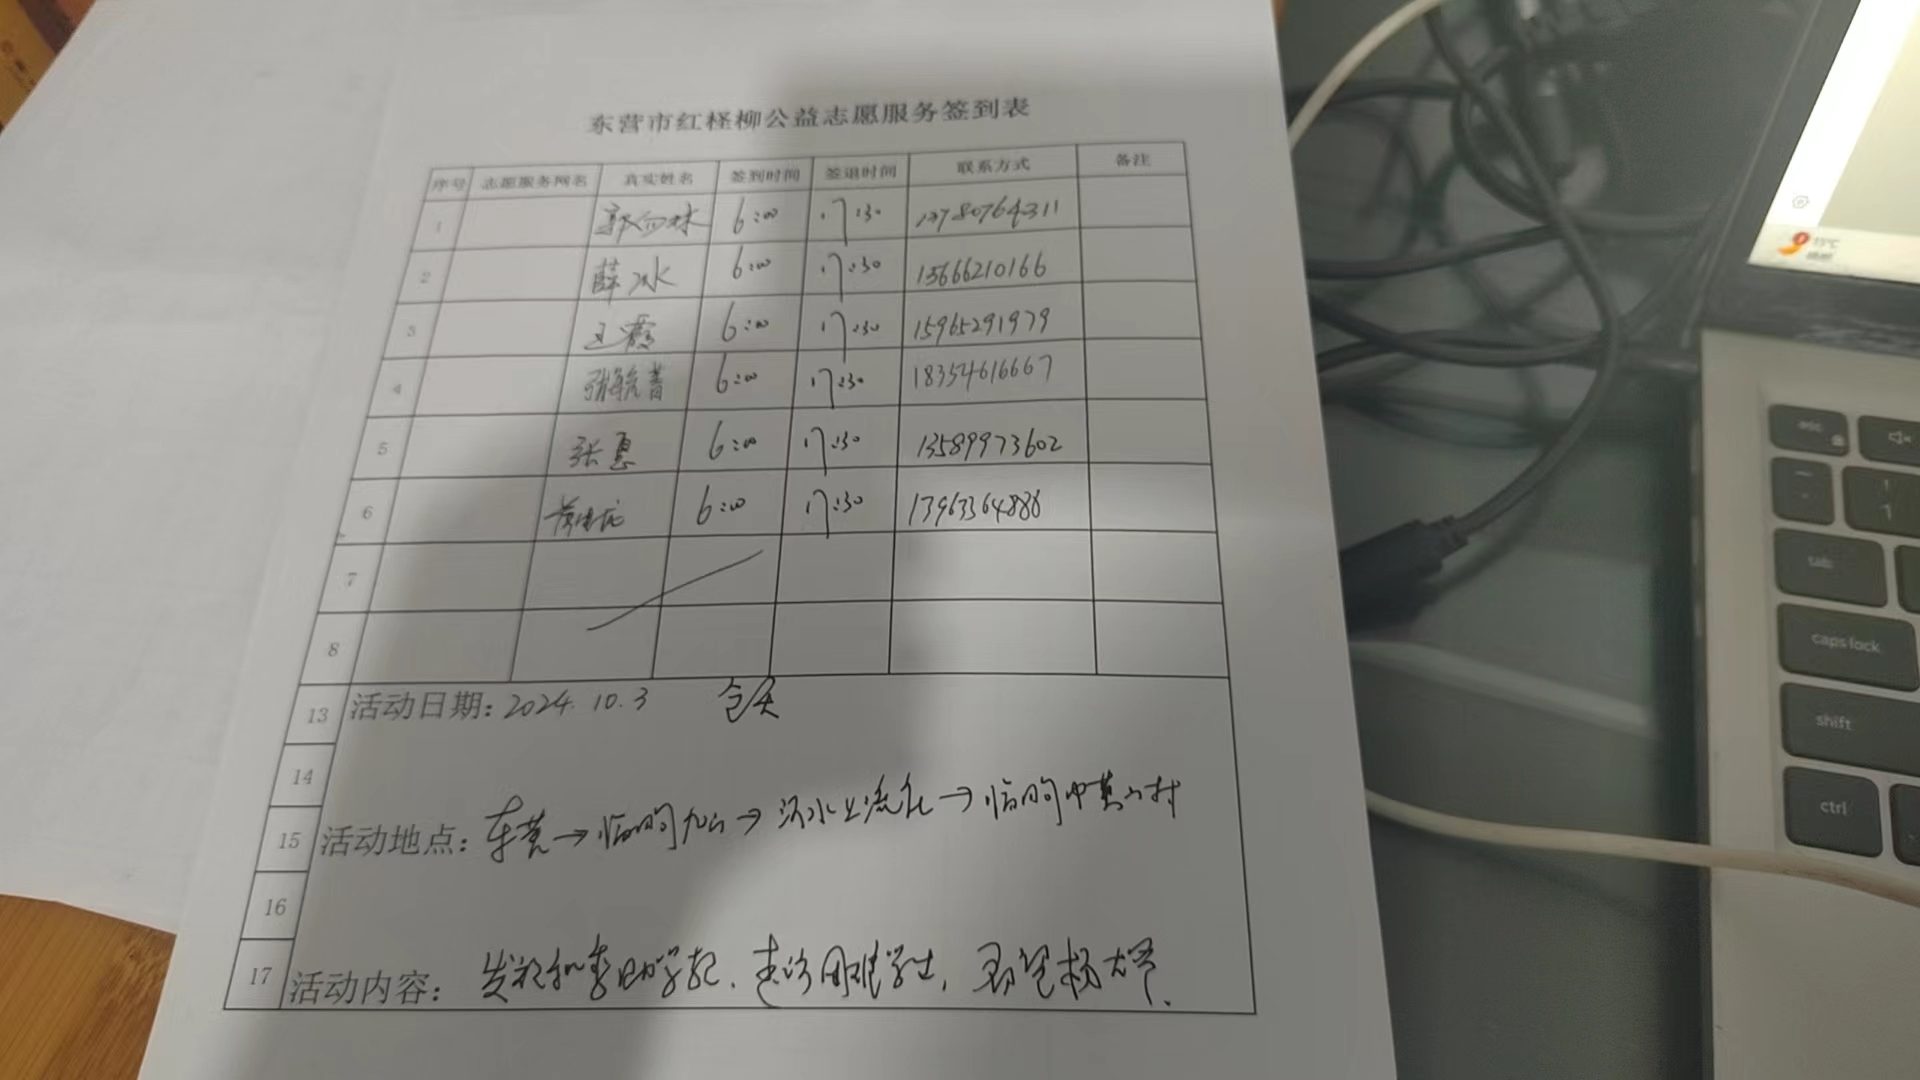 东营市红柽柳公益志愿服务签到表
序号 志愿服务网名 真实姓名 签到时间 签退时间 联系方式 备注
1 6:00 17:30 13780764311
2 薛冰 6:00 17:30 15666210166
3 王霞 6:00 17:30 15965291979
4 6:00 17:30 18354616667
5 张惠 6:00 17:30 13589973602
6 6:00 17:30 13963364888
7
8
13 活动日期：2024.10.3 全天
14
15 活动地点：东营→临朐九山→沂水→临朐中黄山村
16
17 活动内容：助学款、走访困难学生,
esc
tab
caps lock
shift
ctrl